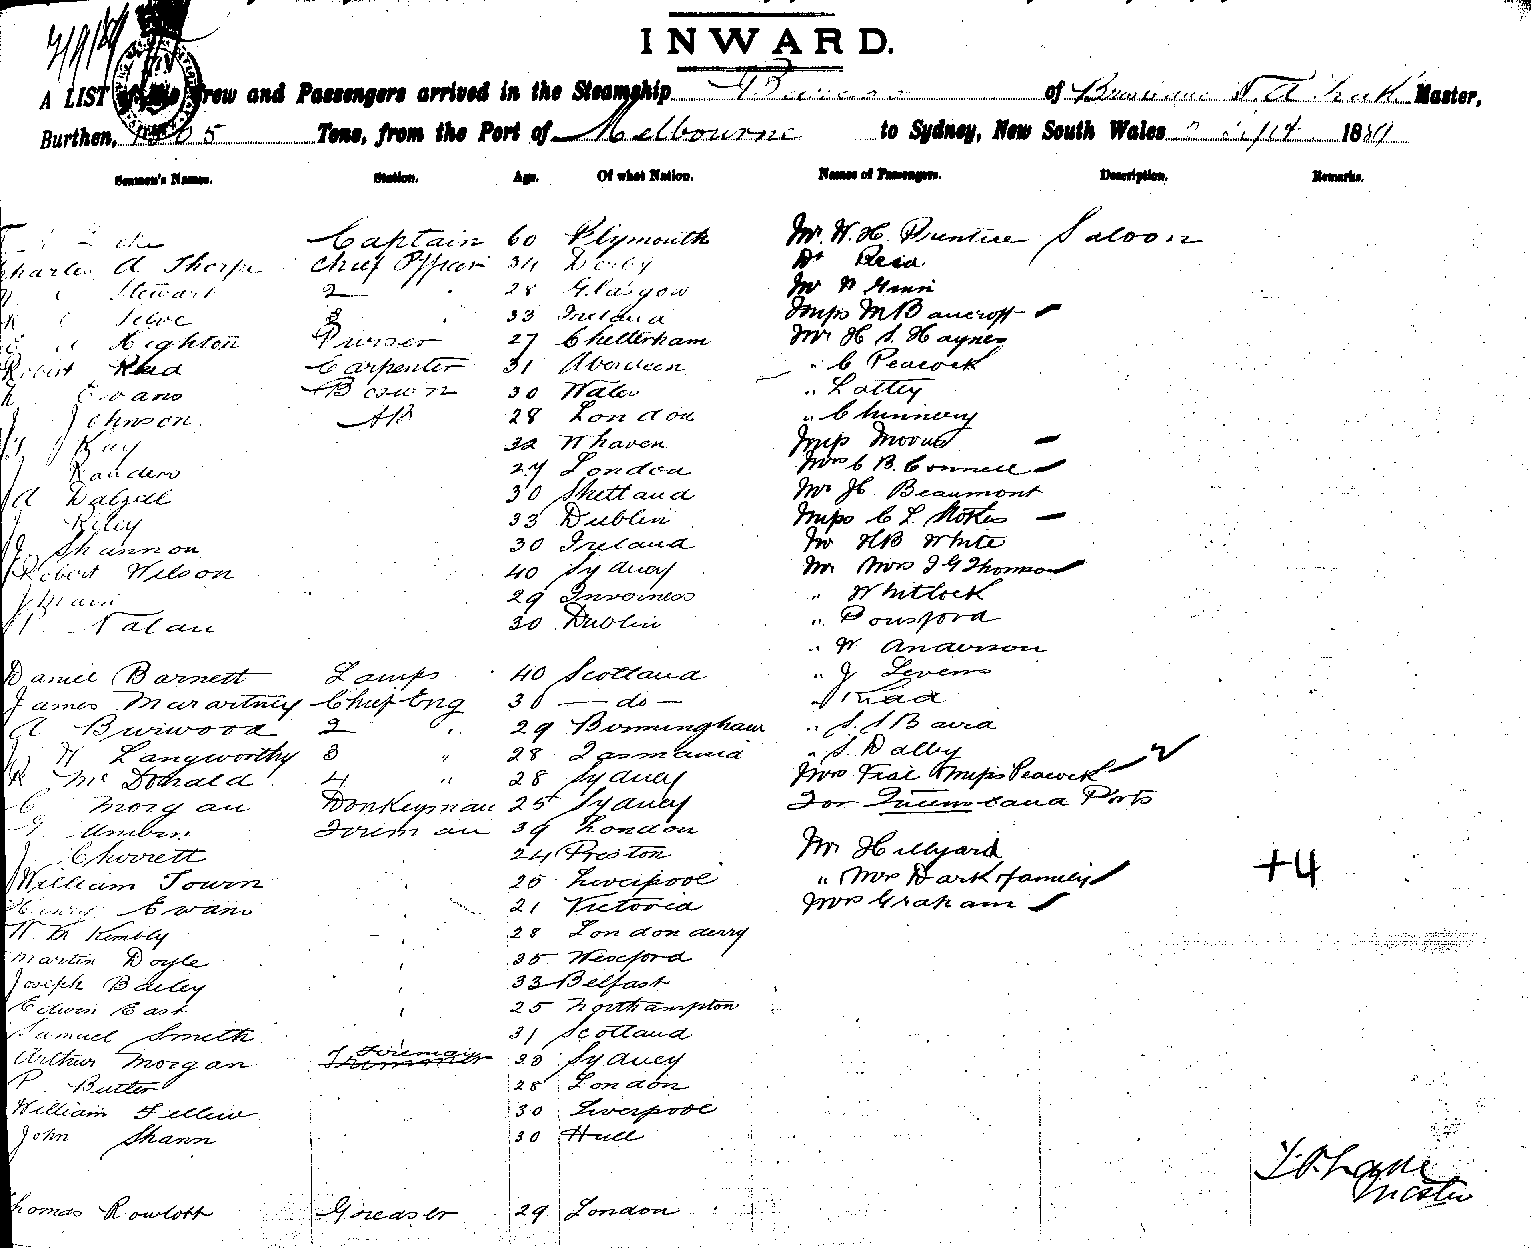 INWARD.
A LIST of the Crew and Passengers arrived in the Steamship of Brisbane T. A. Master,
Burthen, Tons, from the Port of Melbourne to Sydney, New South Wales Sept 1889
Seamen's Names. Station. Age. Of what Nation. Names of Passengers. Description. Remarks.
Captain 60 Plymouth Mr. W. H. Saloon
Charles A Thorpe Chief Officer 34 Derby Dr Reid
Stewart 2 " 28 Glasgow Mr
3 33 Ireland Miss M Bancroft
Highton Purser 27 Cheltenham Mr H S Haynes
Robert Reid Carpenter 31 Aberdeen " C Peacock
Evans Bosun 30 Wales " Lattey
J Johnson AB 28 London " Chinnery
Kay 32 Whaven Miss
J Randers 27 London Mrs C B. Connell
A Dalzell 30 Shetland Mr H. Beaumont
J Riley 33 Dublin Miss C L Stokes
J. Shannon 30 Ireland Mr HB White
Robert Wilson 40 Sydney Mr Mrs J G Thomson
29 Inverness " Whitlock
Nalan 30 Dublin " Ponsford
" W Anderson
Daniel Barnett Lamps 40 Scotland " J Levens
James Macartney Chief Eng 30 — do —
A Burwood 2 " 29 Birmingham " Baird
W Langworthy 3 " 28 Tasmania " S. Dalby
R McDonald 4 " 28 Sydney Mrs & Miss Peacock
C Morgan Donkeyman 25 Sydney For Queensland Ports
Fireman 39 London
J. Chorrett 24 Preston Mr Hillyard
William Towrn 25 Liverpool " Mrs Dark & family
Henry Evans 21 Victoria Mrs Graham
+4
W. M Kimbly 28 Londonderry
Martin Doyle 35 Wexford
Joseph Bailey 33 Belfast
Edwin East 25 Northampton
Samuel Smith 31 Scotland
Arthur Morgan Fireman 30 Sydney
P. Butler 28 London
William 30 Liverpool
John Shann 30 Hull
Master
Thomas Rowlott Greaser 29 London